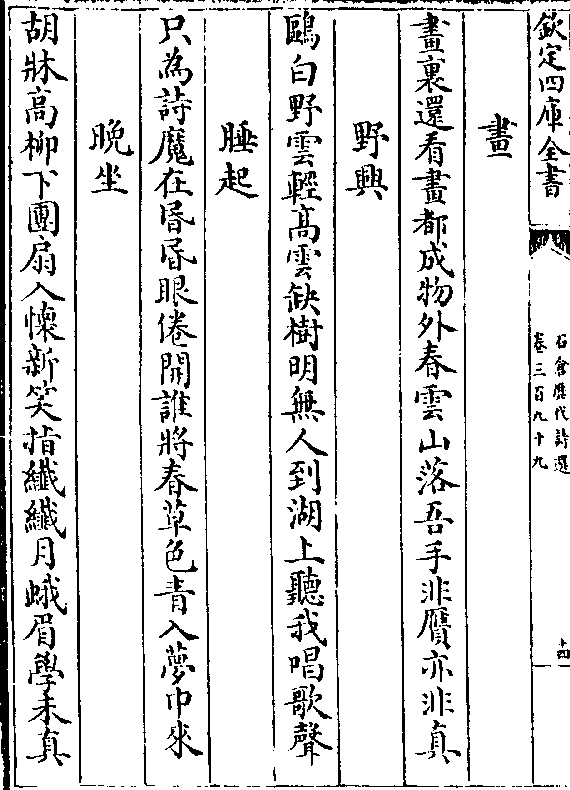 欽定四庫全書
石倉歷代詩選
卷三百九十九
十四
畫
畫裏還看畫都成物外春雲山落吾手非贋亦非真
野興
鷗白野雲輕髙雲缺樹明無人到湖上聽我唱歌聲
睡起
只為詩魔在昏昏眼倦開誰將春草色青入夢中來
晩坐
胡牀高柳下團扇入懐新笑指纎纎月蛾眉學未真